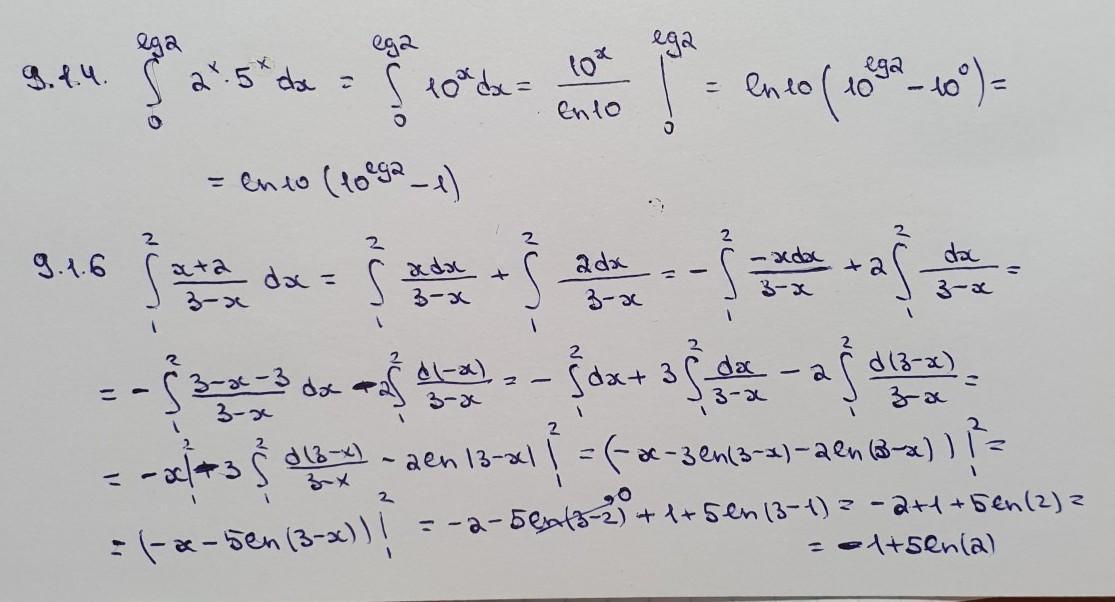 9.1.4. ∫₀^{lg2} 2^x · 5^x dx = ∫₀^{lg2} 10^x dx = 10^x / ln10 |₀^{lg2} = ln10 (10^{lg2} − 10^0) =
= ln10 (10^{lg2} − 1)
9.1.6 ∫₁² (x+2)/(3−x) dx = ∫₁² xdx/(3−x) + ∫₁² 2dx/(3−x) = − ∫₁² −xdx/(3−x) + 2∫₁² dx/(3−x) =
= − ∫₁² (3−x−3)/(3−x) dx − 2∫₁² d(−x)/(3−x) = − ∫₁² dx + 3∫₁² dx/(3−x) − 2∫₁² d(3−x)/(3−x) =
= −x|₁² − 3∫₁² d(3−x)/(3−x) − 2ln|3−x| |₁² = (−x − 3ln(3−x) − 2ln(3−x)) |₁² =
= (−x − 5ln(3−x)) |₁² = −2 − 5ln(3−2)^{→0} + 1 + 5ln(3−1) = −2+1+5ln(2) =
= −1+5ln(2)